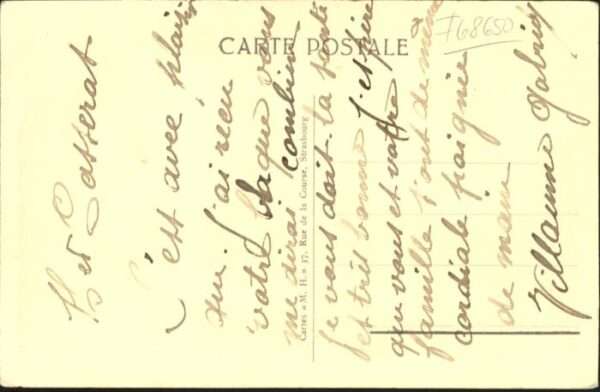 CARTE POSTALE
768650
Cartes « M. H. » 17, Rue de la Course, Strasbourg
Casserat
C'est avec plaisir
que J'ai recu
votre blague vous
me dirai combien
Je vous doit. la santé
et très bonne J'espère
que vous et votre
famille sont de même
cordiale poignée
de main
Villaume Gabriel